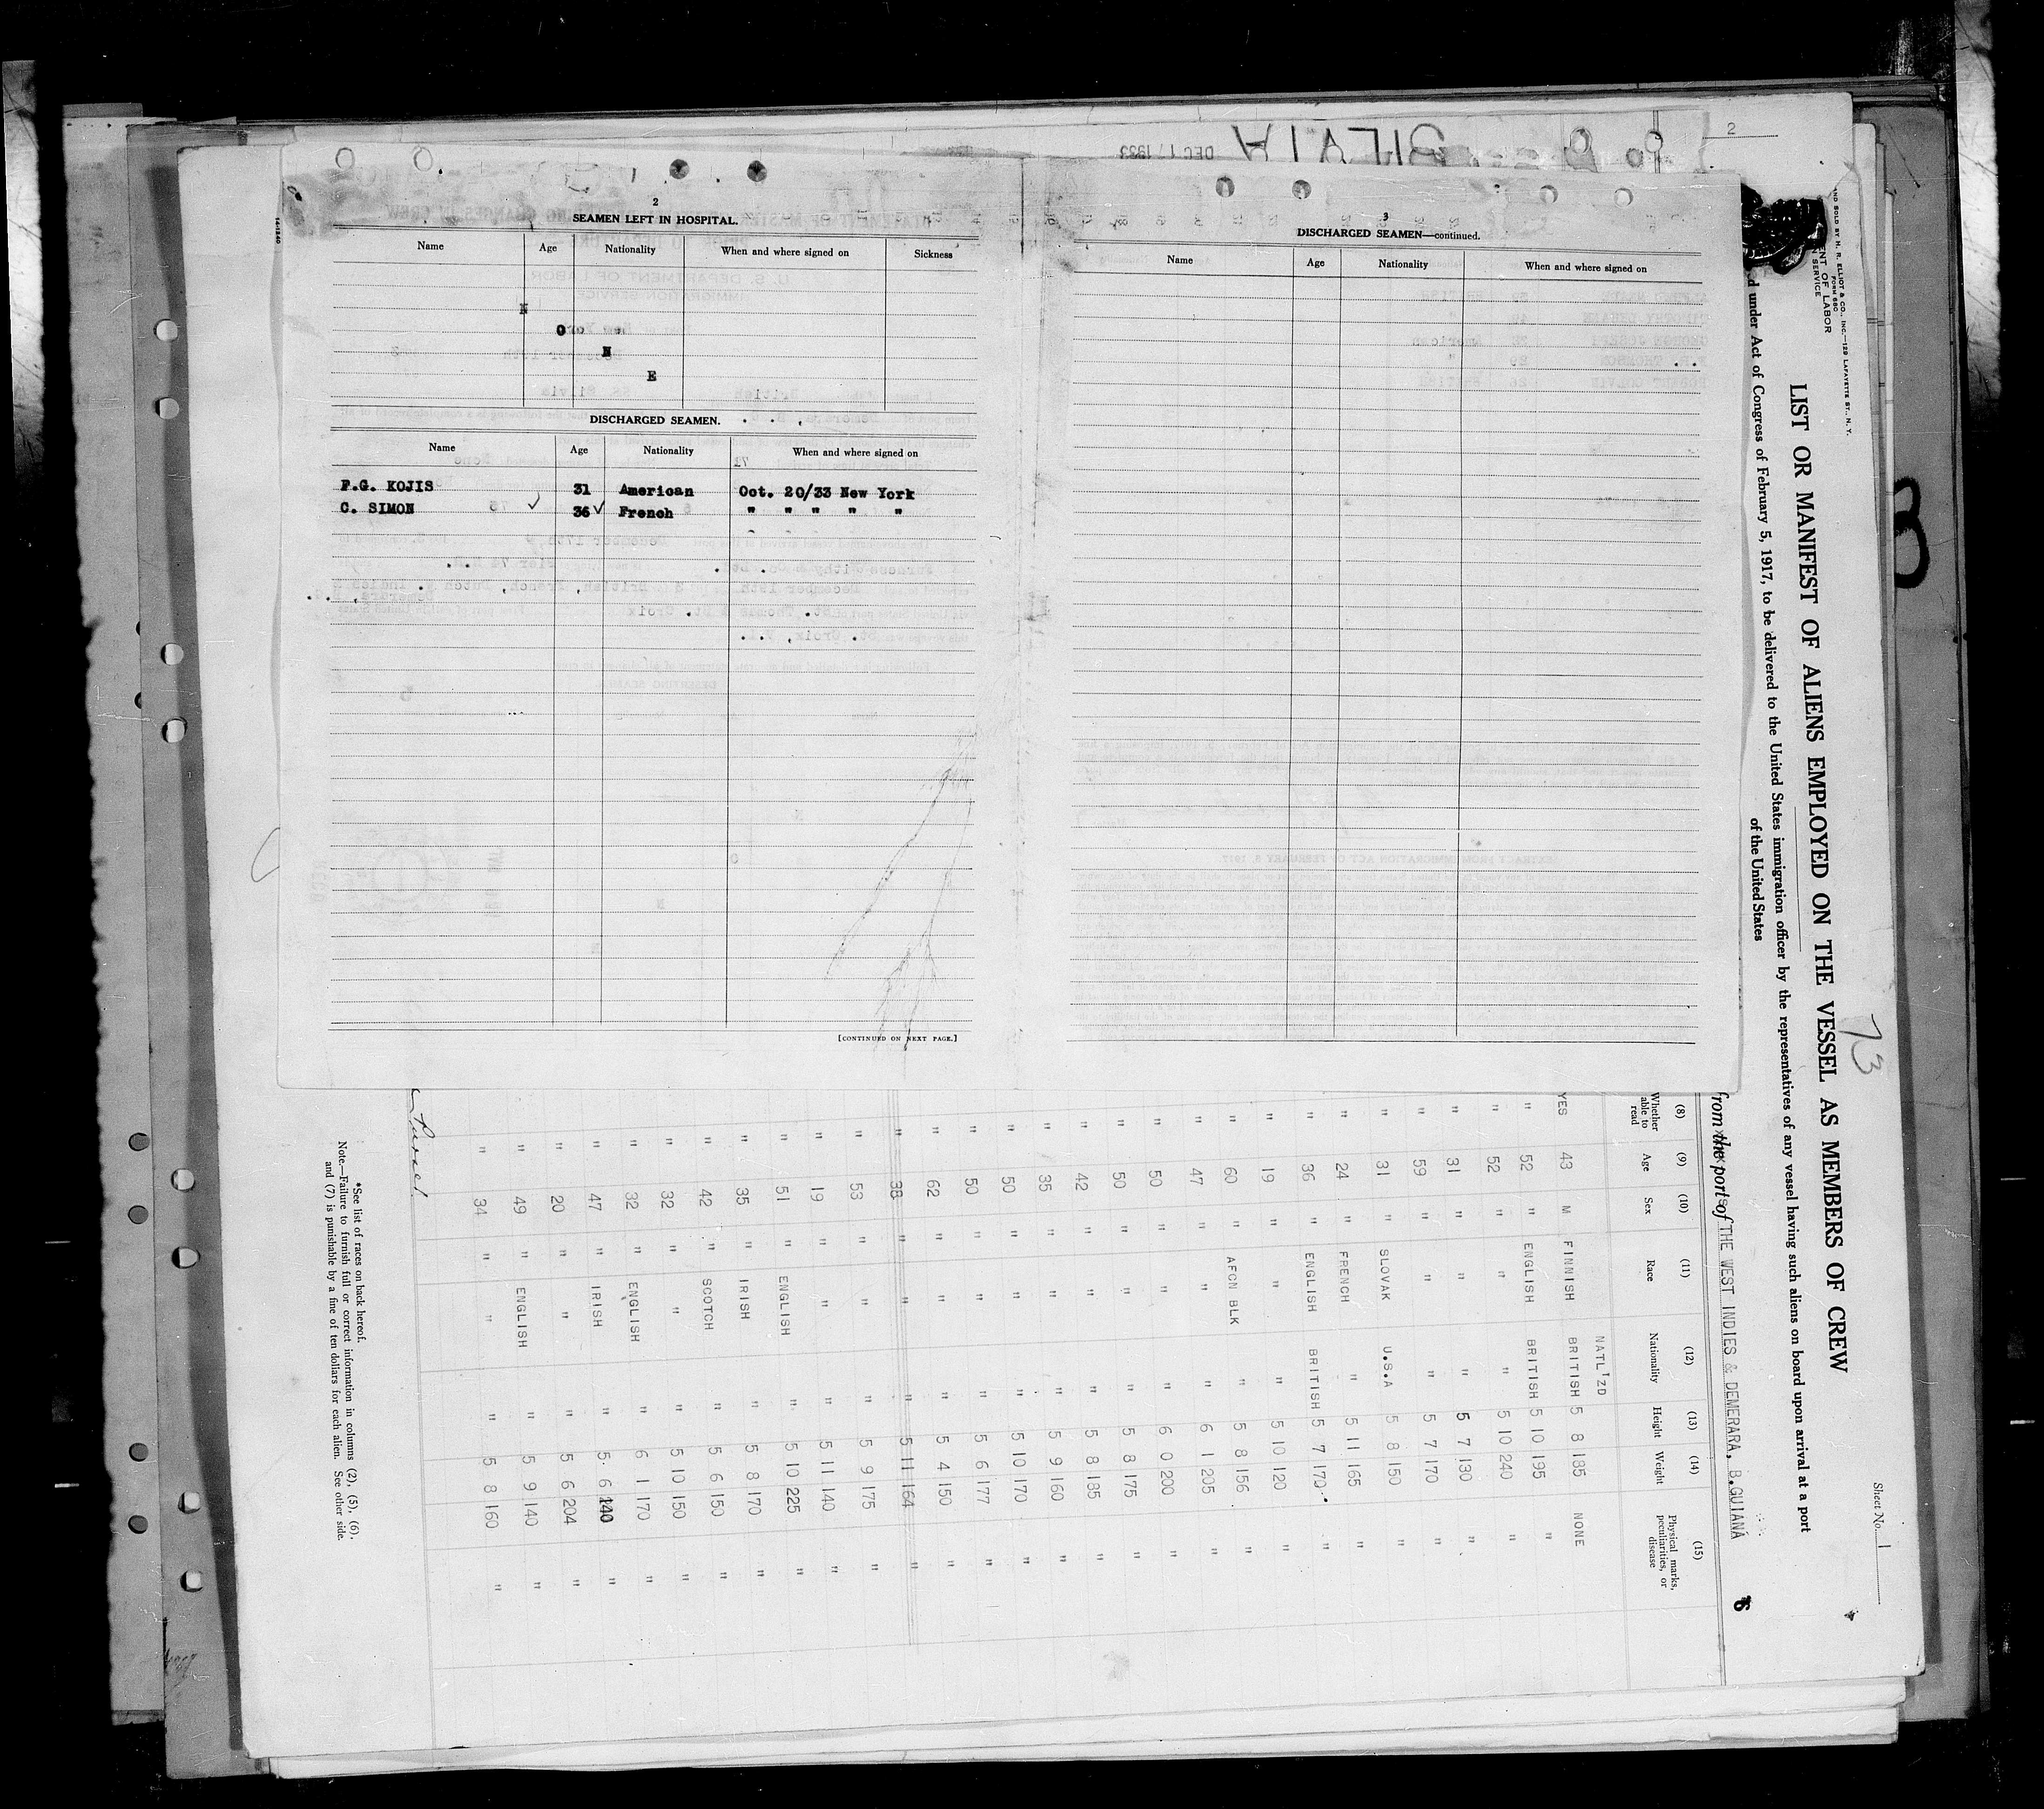 2
SEAMEN LEFT IN HOSPITAL.
Name Age Nationality When and where signed on Sickness
N
O
N
E
DISCHARGED SEAMEN.
Name Age Nationality When and where signed on
F.G. KOJIS 31 American Oct. 20/33 New York
C. SIMON 36 French " " " " "
[CONTINUED ON NEXT PAGE.]
3
DISCHARGED SEAMEN—continued.
Name Age Nationality When and where signed on
SILVIA
DEC 17 1933
2
14-1240
AND SOLD BY H. R. ELLIOT & CO., INC.—129 LAFAYETTE ST., N. Y.
FORM 680
ENT OF LABOR
N SERVICE
Sheet No. 1
73
LIST OR MANIFEST OF ALIENS EMPLOYED ON THE VESSEL AS MEMBERS OF CREW
d under Act of Congress of February 5, 1917, to be delivered to the United States immigration officer by the representatives of any vessel having such aliens on board upon arrival at a port
of the United States
from the ports of THE WEST INDIES & DEMERARA, B.GUIANA
6
(8) (9) (10) (11) (12) (13) (14) (15)
Whether able to read Age Sex Race Nationality Height Weight Physical marks, peculiarities, or disease
NATL'ZD
YES 43 M FINNISH BRITISH 5 8 185 NONE
" 52 " ENGLISH BRITISH 5 10 195 "
" 52 " " " 5 10 240 "
" 31 " " " 5 7 130 "
" 59 " " " 5 7 170 "
" 31 " SLOVAK U.S.A 5 8 150 "
" 24 " FRENCH " 5 11 165 "
" 36 " ENGLISH BRITISH 5 7 170 "
" 19 " " " 5 10 120 "
" 60 " AFCN BLK " 5 8 156 "
" 47 " " " 6 1 205 "
" 50 " " " 6 0 200 "
" 50 " " " 5 8 175 "
" 42 " " " 5 8 185 "
" 35 " " " 5 9 160 "
" 50 " " " 5 10 170 "
" 50 " " " 5 6 177 "
" 62 " " " 5 4 150 "
" 38 " " " 5 11 164 "
" 53 " " " 5 9 175 "
" 19 " " " 5 11 140 "
" 51 " ENGLISH " 5 10 225 "
" 35 " IRISH " 5 8 170 "
" 42 " SCOTCH " 5 6 150 "
" 32 " " " 5 10 150 "
" 32 " ENGLISH " 6 1 170 "
" 47 " IRISH " 5 6 140 "
" 20 " " " 5 6 204 "
" 49 " ENGLISH " 5 9 140 "
" 34 " " " 5 8 160 "
*See list of races on back hereof.
Note.—Failure to furnish full or correct information in columns (2), (5), (6),
and (7) is punishable by a fine of ten dollars for each alien. See other side.